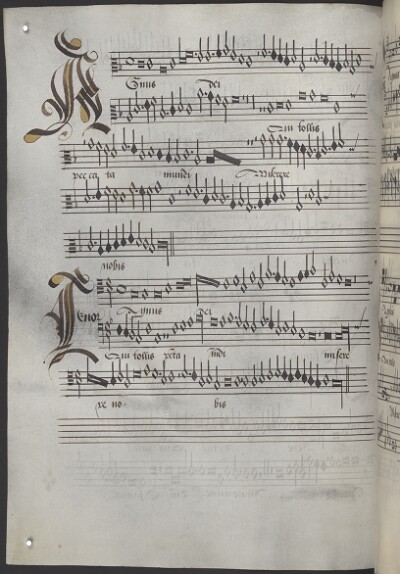 Agnus dei
Qui tollis
pecca ta mundi Miserere
nobis
Tenor Agnus dei
Qui tollis pcta mdi misere
re no bis